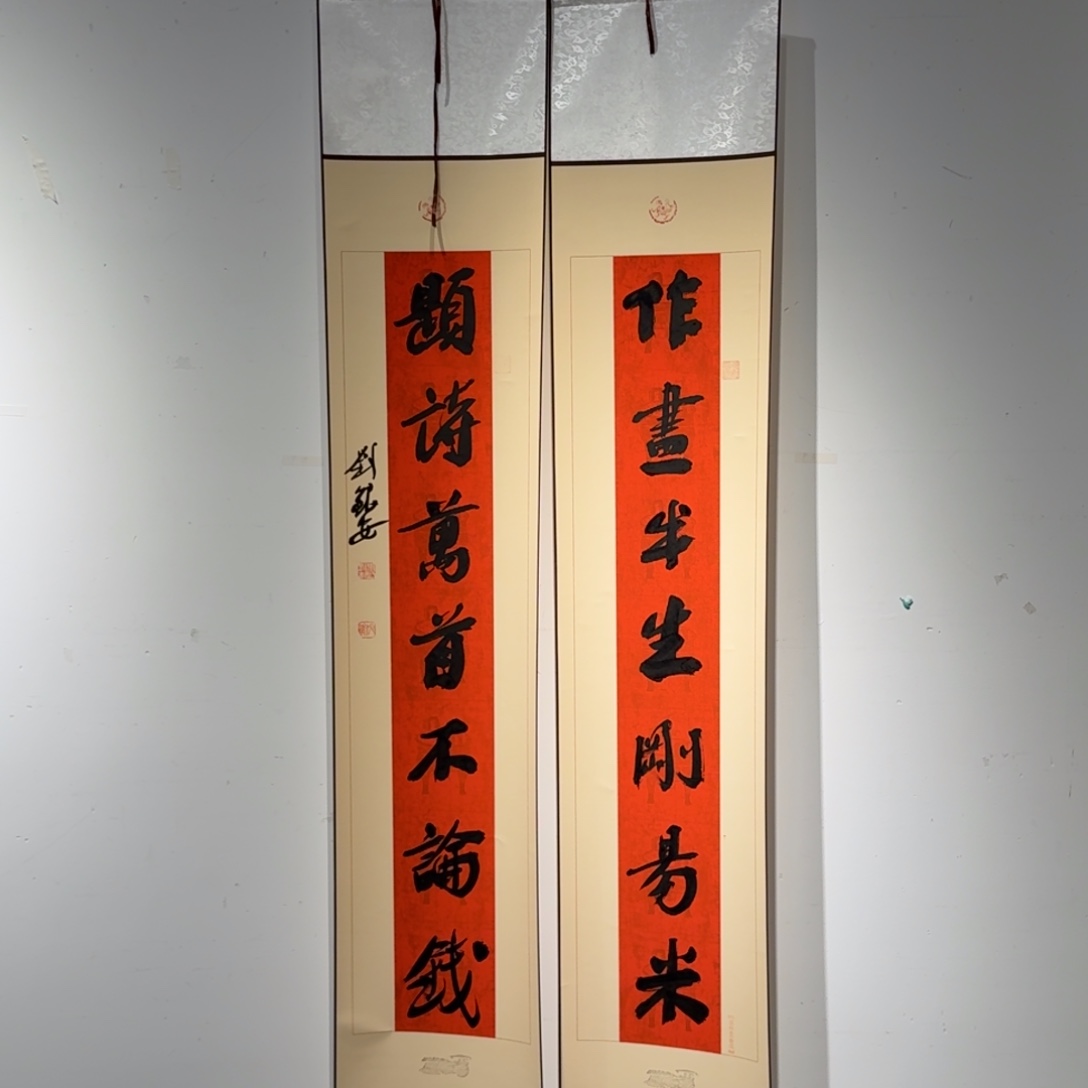 作畫半生剛易米
題詩萬首不論錢